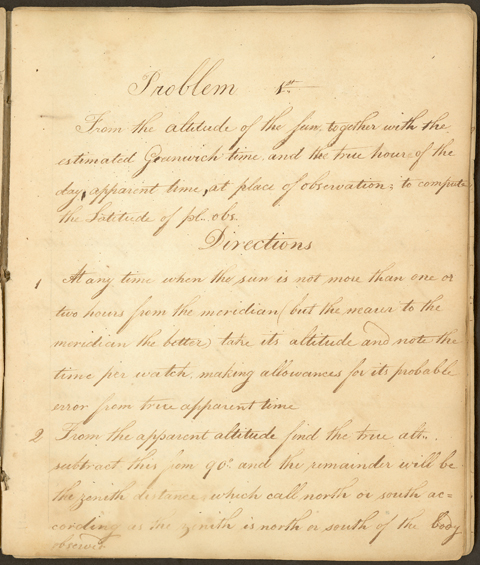 Problem 1st
From the altitude of the sun together with the
estimated Greanwich time and the true hour of the
day, apparent time, at place of observation; to compute
the Latitude of pl. obs.
Directions
1 At any time when the sun is not more than one or
two hours from the meridian (but the nearer to the
meridian the better) take its altitude and note the
time per watch making allowances for its probable
error from true apparent time
2 From the apparent altitude find the true alt..
subtract this from 90° and the remainder will be
the zenith distance, which call north or south ac=
cording as the zenith is north or south of the body
observed